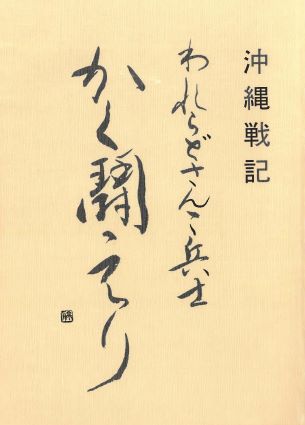 沖縄戦記
われらどさんこ兵士
かく闘へり